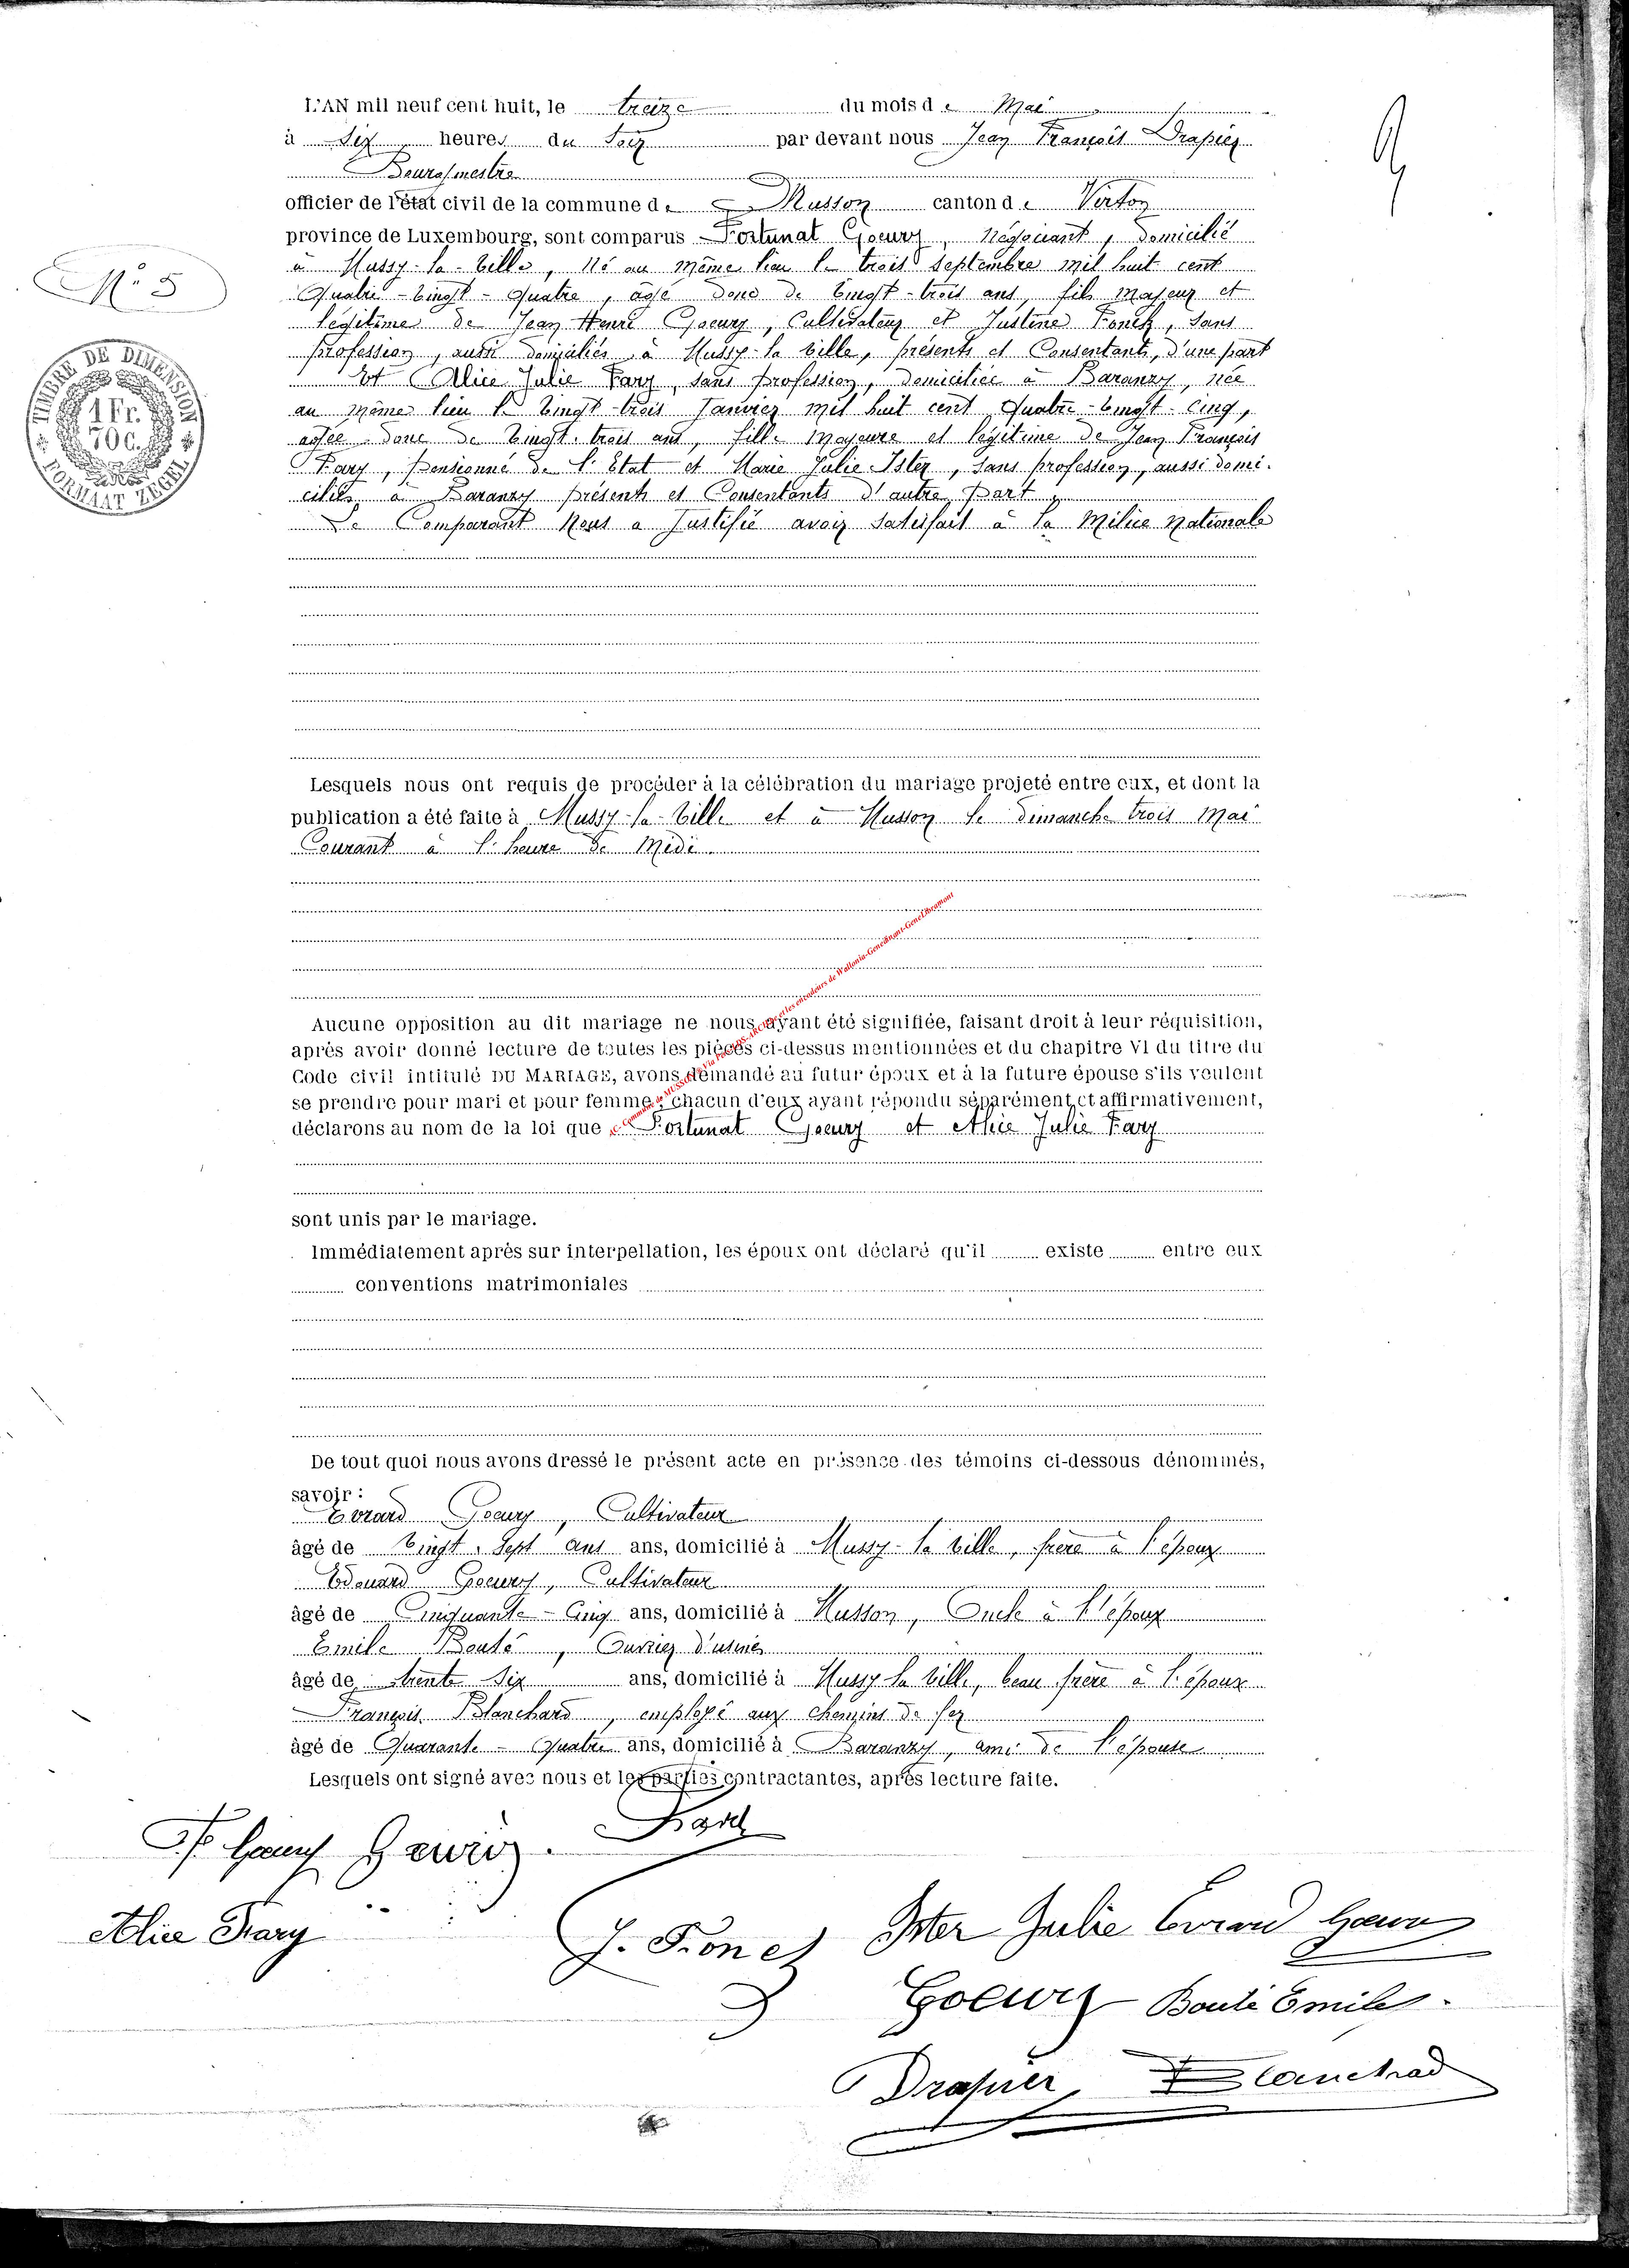 L'AN mil neuf cent huit, le treize du mois de Mai
à Six heures du Soir par devant nous Jean François Drapier
Bourgmestre
officier de l'état civil de la commune de Musson canton de Virton
province de Luxembourg, sont comparus Fortunat Goeury, Négociant, domicilié
à Mussy-la-ville, né au même lieu le trois Septembre mil huit cent
Quatre-vingt-Quatre, âgé donc de vingt-trois ans, fils majeur et
légitime de Jean Henri Goeury, Cultivateur et Justine Fonck, Sans
profession, aussi domiciliés à Mussy-la ville, présents et Consentants, d'une part
Et Alice Julie Fary, sans profession, domiciliée à Baranzy, née
au même lieu le vingt-trois Janvier mil huit cent Quatre-vingt-cinq,
agée donc de vingt-trois ans, fille majeure et légitime de Jean François
Fary, pensionné de l'Etat et Marie Julie Ister, sans profession, aussi domi-
ciliés à Baranzy présents et Consentants d'autre part
Le Comparant Nous a Justifié avoir Satisfait à la Milice Nationale
N° 5
TIMBRE DE DIMENSION
1 Fr.
70 C.
FORMAAT ZEGEL
9
Lesquels nous ont requis de procéder à la célébration du mariage projeté entre eux, et dont la
publication a été faite à Mussy-la-ville et à Musson le dimanche trois Mai
Courant à l'heure de Midi.
Aucune opposition au dit mariage ne nous ayant été signifiée, faisant droit à leur réquisition,
après avoir donné lecture de toutes les pièces ci-dessus mentionnées et du chapitre VI du titre du
Code civil intitulé DU MARIAGE, avons demandé au futur époux et à la future épouse s'ils veulent
se prendre pour mari et pour femme; chacun d'eux ayant répondu séparément et affirmativement,
déclarons au nom de la loi que Fortunat Goeury et Alice Julie Fary
sont unis par le mariage.
Immédiatement après sur interpellation, les époux ont déclaré qu'il existe entre eux
conventions matrimoniales
De tout quoi nous avons dressé le présent acte en présence des témoins ci-dessous dénommés,
savoir :
Evrard Goeury, Cultivateur
âgé de vingt-Sept ans ans, domicilié à Mussy-la ville, frère à l'époux
Edouard Goeury, Cultivateur
âgé de Cinquante-Cinq ans, domicilié à Musson, Oncle à l'époux
Emile Bouté, Ouvrier d'usine
âgé de trente Six ans, domicilié à Mussy la ville, beau frère à l'époux
François Blanchard, employé aux chemins de fer
âgé de Quarante-Quatre ans, domicilié à Baranzy, ami de l'épouse
Lesquels ont signé avec nous et les parties contractantes, après lecture faite.
F. Goeury Goeury. Fary
Alice Fary J. Fonck Ister Julie Evrard Goeury
Goeury Bouté Emile.
Drapier Blanchard